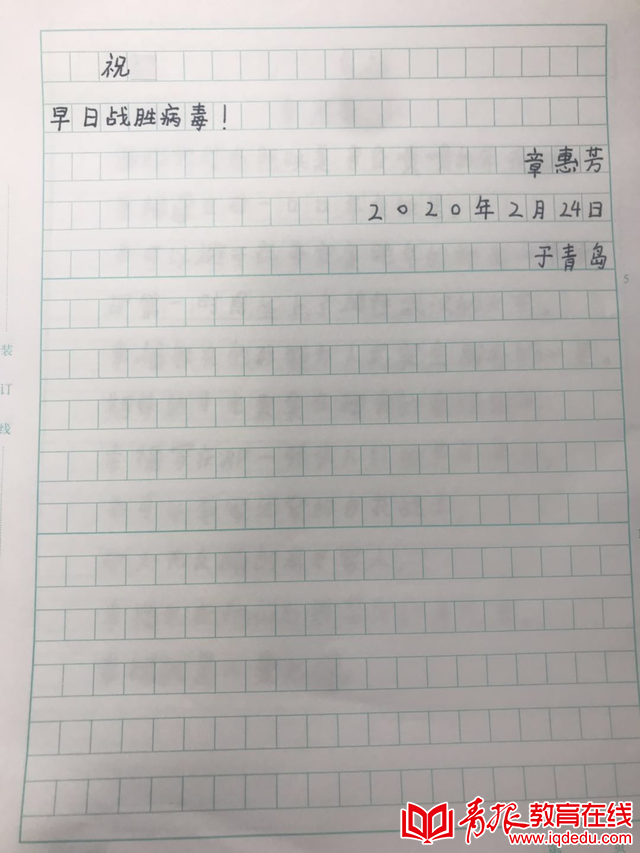 祝
早日战胜病毒！
章惠芳
2020年2月24日
于青岛
5
装
订
线
青报教育在线
www.iqdedu.com